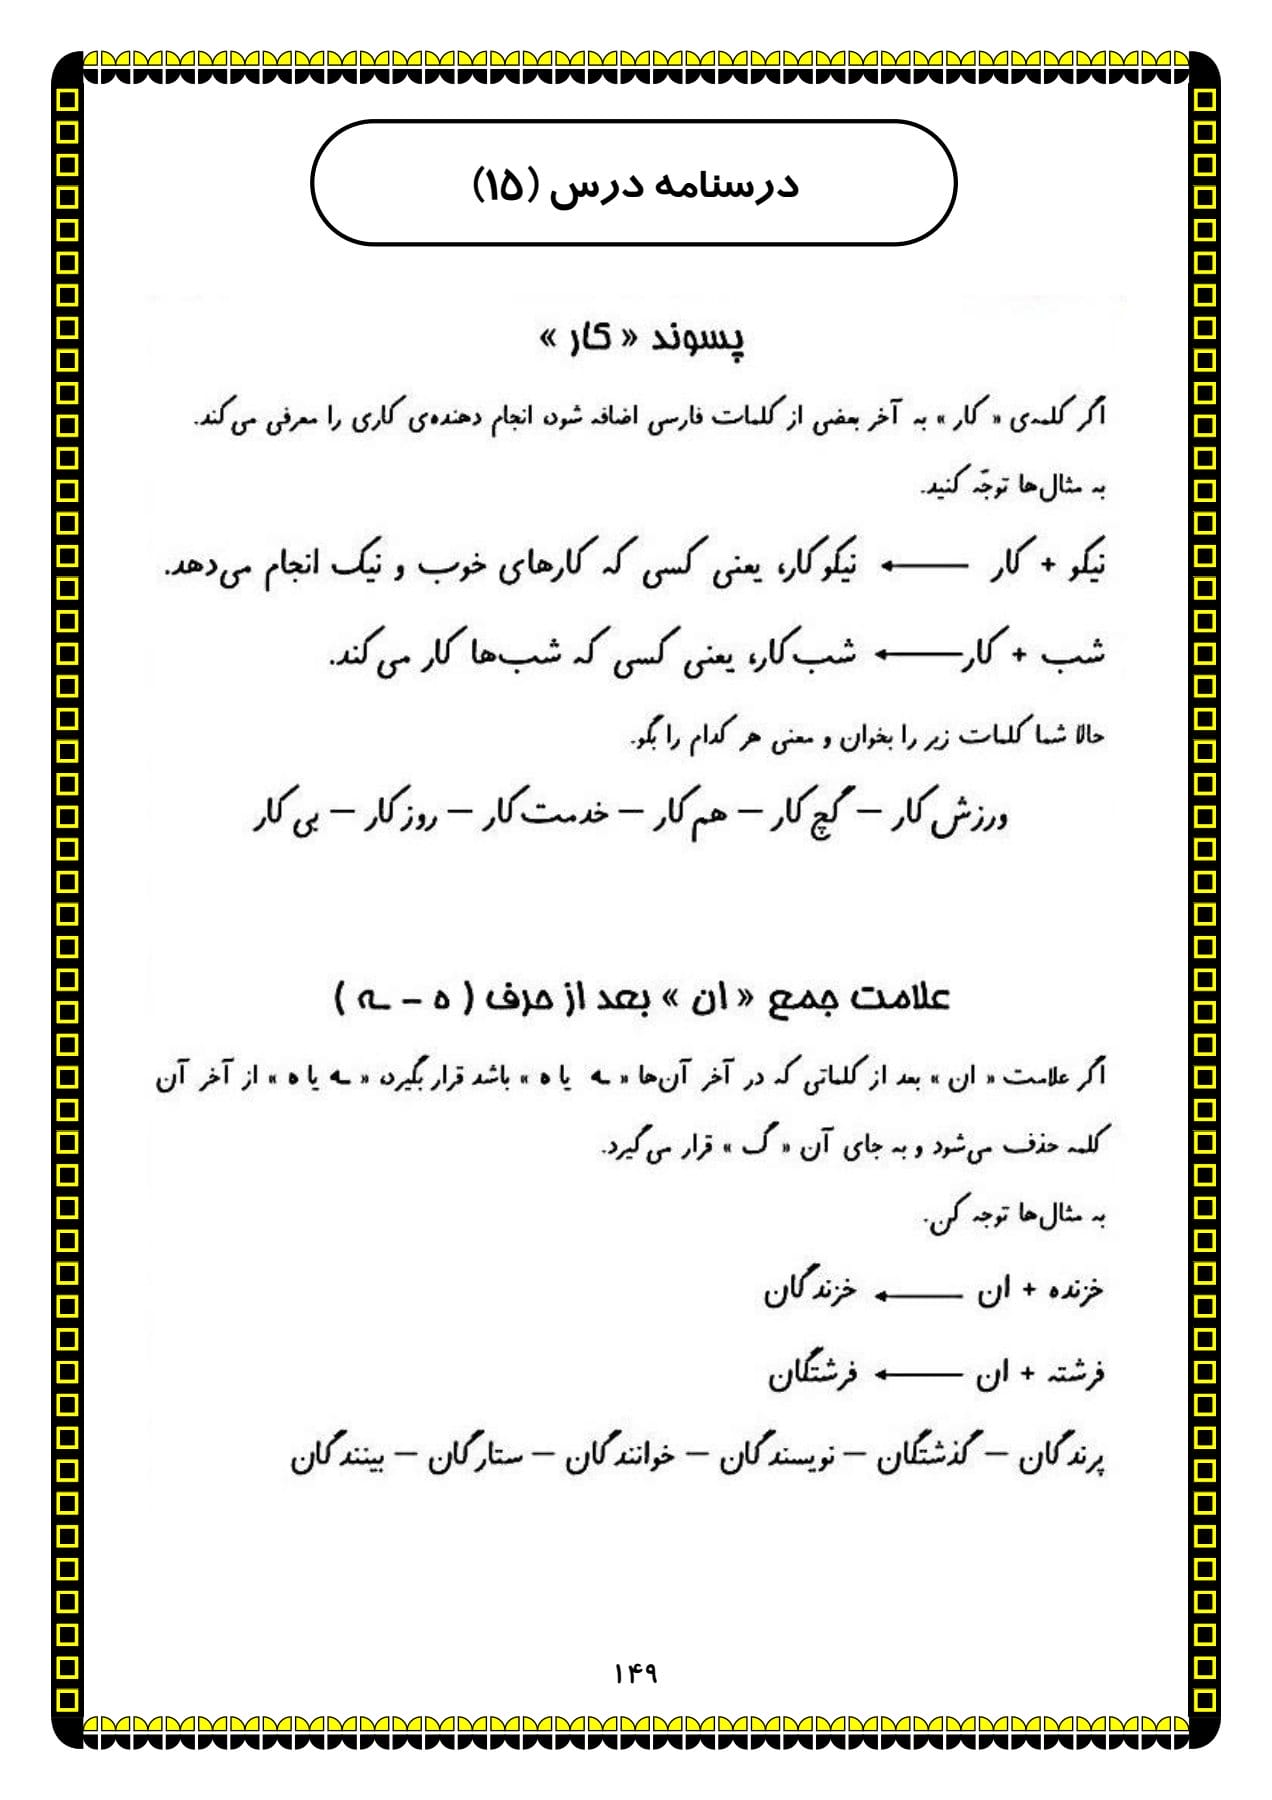 درسنامه درس (۱۵)
پسوند « کار »
اگر کلمه‌ی « کار » به آخر بعضی از کلمات فارسی اضافه شود، انجام دهنده‌ی کاری را معرفی می‌کند.
به مثال‌ها توجّه کنید.
نیکو + کار ← نیکوکار، یعنی کسی که کارهای خوب و نیک انجام می‌دهد.
شب + کار ← شب‌کار، یعنی کسی که شب‌ها کار می‌کند.
حالا شما کلمات زیر را بخوان و معنی هر کدام را بگو.
ورزش‌کار – گچ‌کار – هم‌کار – خدمت‌کار – روزکار – بی‌کار
علامت جمع « ان » بعد از حرف ( ه – ـه )
اگر علامت « ان » بعد از کلماتی که در آخر آن‌ها « ـه یا ه » باشد قرار بگیرد، « ـه یا ه » از آخر آن
کلمه حذف می‌شود و به جای آن « گ » قرار می‌گیرد.
به مثال‌ها توجه کن.
خزنده + ان ← خزندگان
فرشته + ان ← فرشتگان
پرندگان – گذشتگان – نویسندگان – خوانندگان – ستارگان – بینندگان
۱۴۹